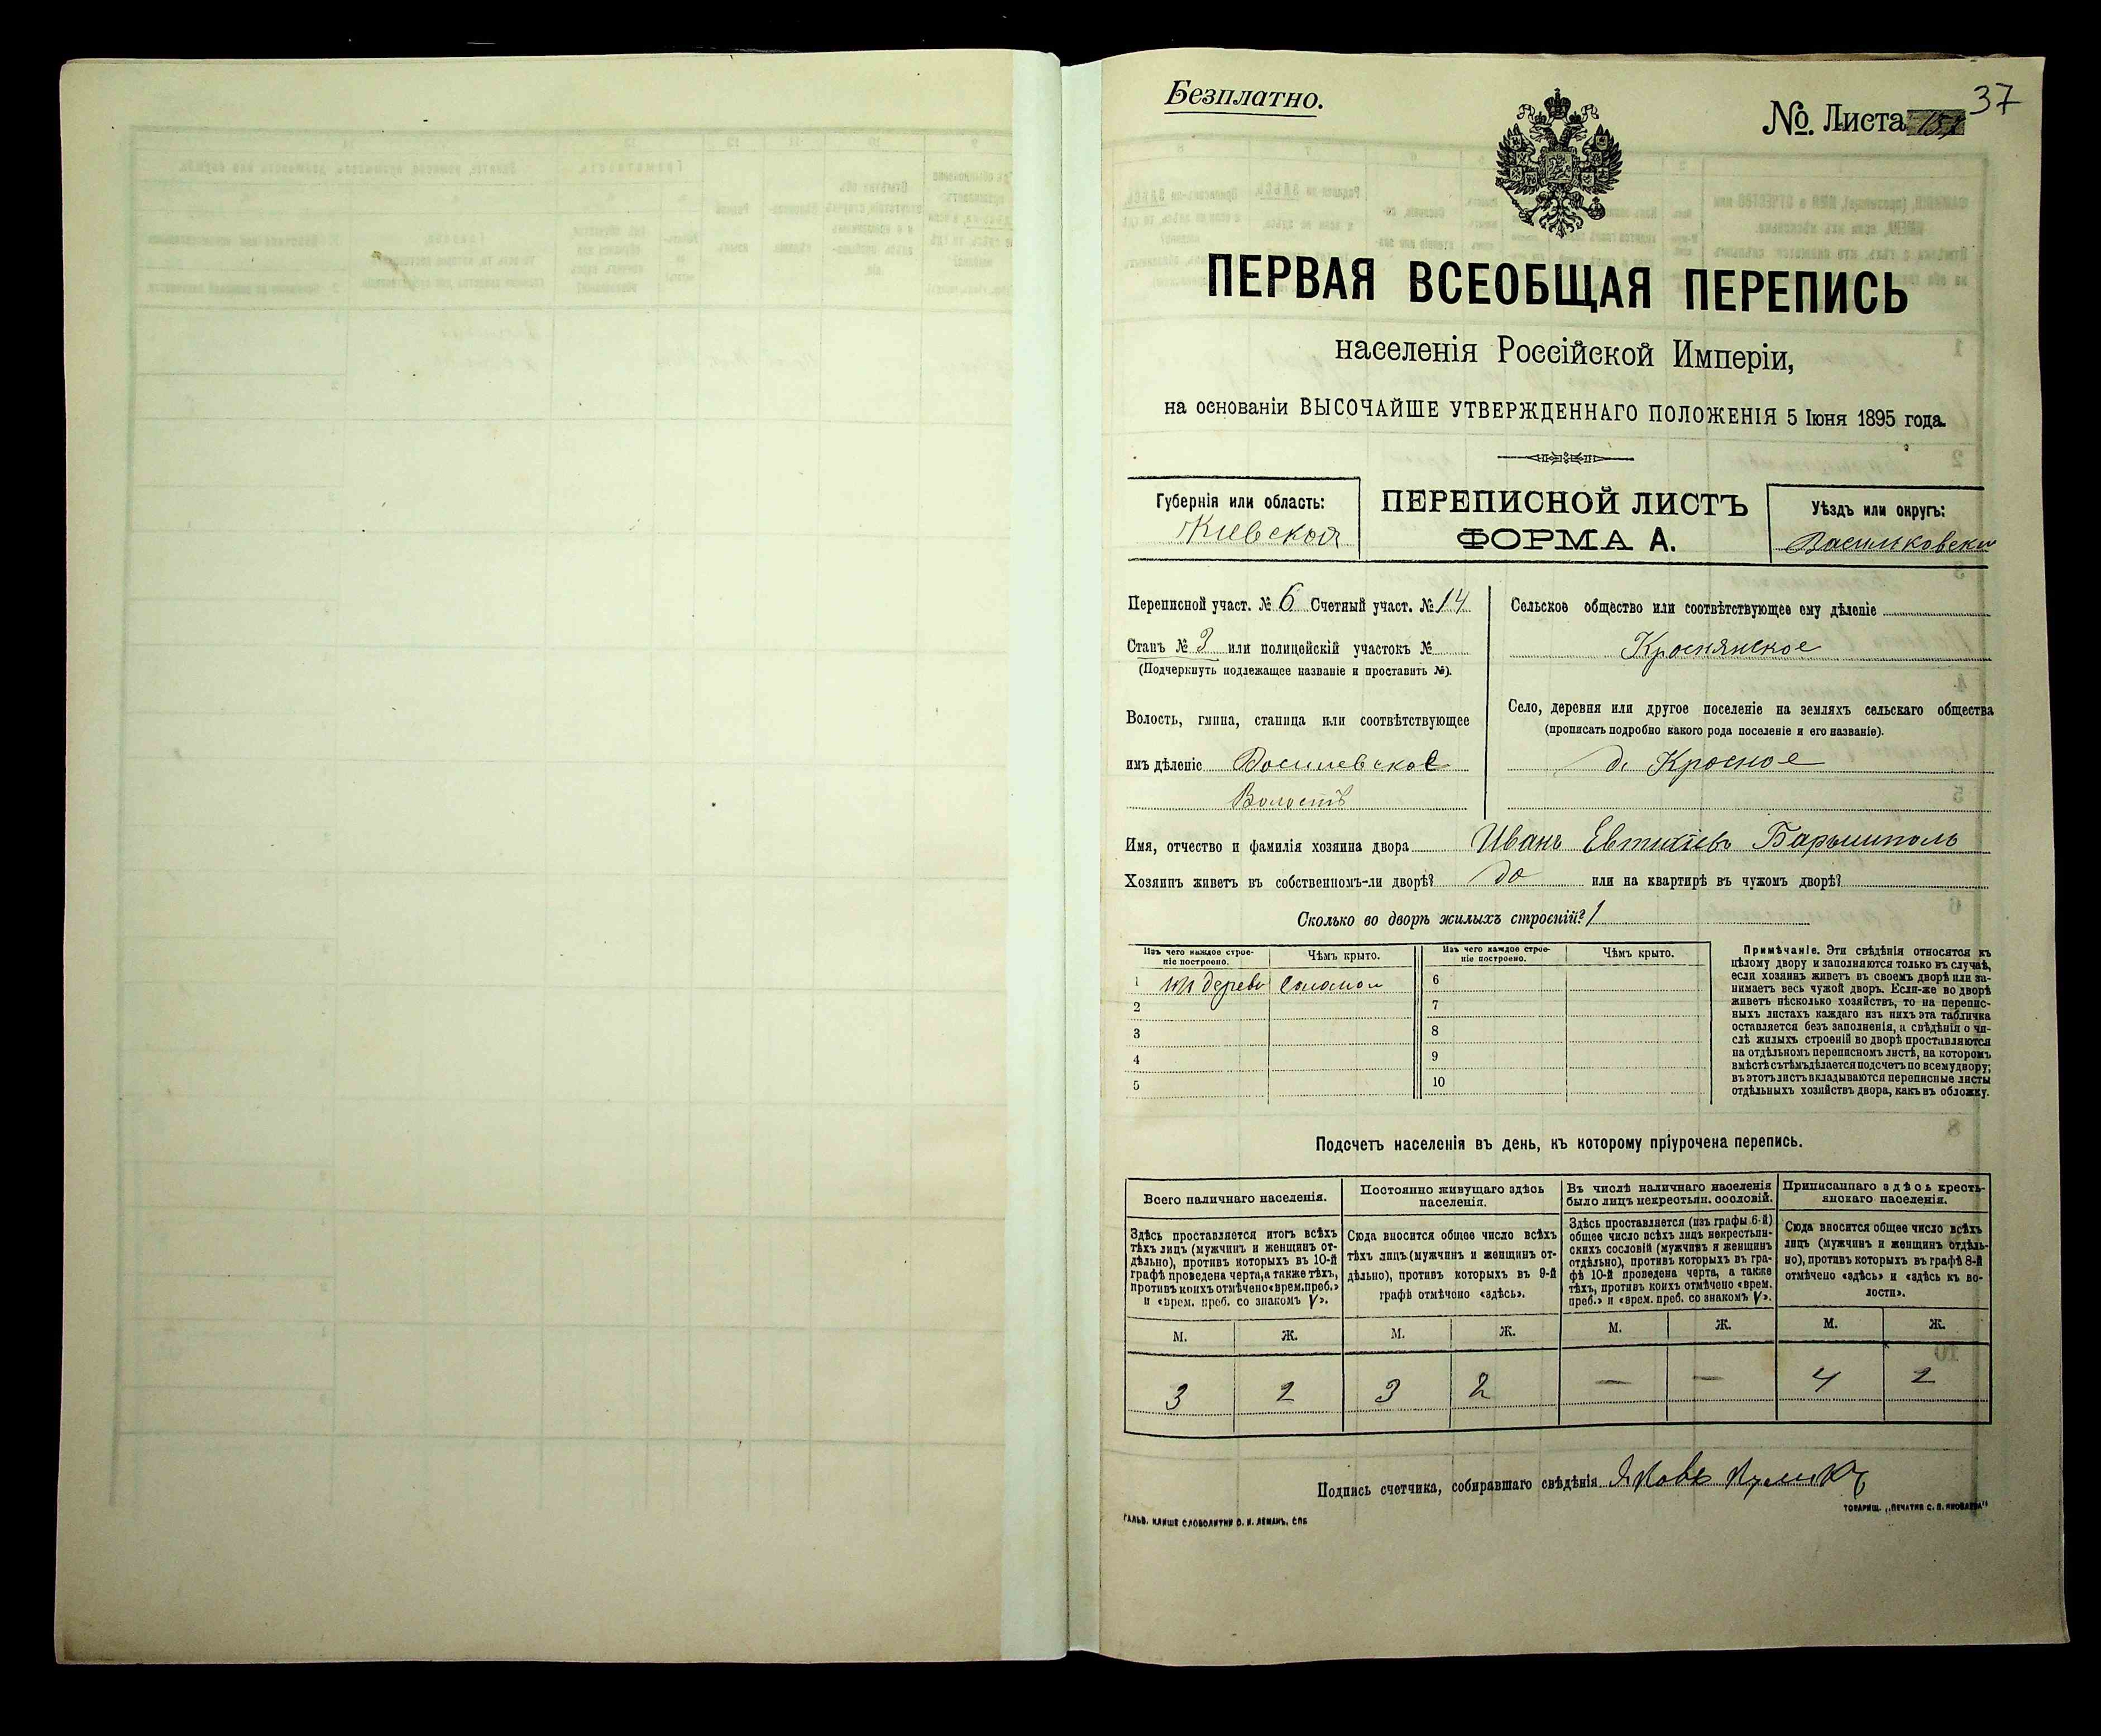 Безплатно.
№. Листа 37
ПЕРВАЯ ВСЕОБЩАЯ ПЕРЕПИСЬ
населенія Россійской Имперіи,
на основаніи ВЫСОЧАЙШЕ УТВЕРЖДЕННАГО ПОЛОЖЕНІЯ 5 Іюня 1895 года.
Губернія или область:
Кіевская
ПЕРЕПИСНОЙ ЛИСТЪ
ФОРМА А.
Уѣздъ или округъ:
Васильковскій
Переписной участ. № 6 Счетный участ. № 14
Станъ № 3 или полицейскій участокъ №
(Подчеркнуть подлежащее названіе и проставить №).
Волость, гмина, станица или соотвѣтствующее
имъ дѣленіе
Волость
Сельское общество или соотвѣтствующее ему дѣленіе
Краснянское
Село, деревня или другое поселеніе на земляхъ сельскаго общества
(прописать подробно какого рода поселеніе и его названіе).
д. Красное
Имя, отчество и фамилія хозяина двора Иванъ Евтихіевъ Барышполь
Хозяинъ живетъ въ собственномъ-ли дворѣ? да или на квартирѣ въ чужомъ дворѣ?
Сколько во дворѣ жилыхъ строеній? 1
Изъ чего каждое строе-
ніе построено.
Чѣмъ крыто.
Изъ чего каждое строе-
ніе построено.
Чѣмъ крыто.
1 дерева соломой
2
3
4
5
6
7
8
9
10
Примѣчаніе. Эти свѣдѣнія относятся къ
цѣлому двору и заполняются только въ случаѣ,
если хозяинъ живетъ въ своемъ дворѣ или за-
нимаетъ весь чужой дворъ. Если-же во дворѣ
живетъ нѣсколько хозяйствъ, то на перепис-
ныхъ листахъ каждаго изъ нихъ эта табличка
оставляется безъ заполненія, а свѣдѣнія о чи-
слѣ жилыхъ строеній во дворѣ проставляются
на отдѣльномъ переписномъ листѣ, на которомъ
вмѣстѣ съ тѣмъ дѣлается подсчетъ по всему двору;
въ этотъ листъ вкладываются переписные листы
отдѣльныхъ хозяйствъ двора, какъ въ обложку.
Подсчетъ населенія въ день, къ которому пріурочена перепись.
Всего наличнаго населенія.
Здѣсь проставляется итогъ всѣхъ
тѣхъ лицъ (мужчинъ и женщинъ от-
дѣльно), противъ которыхъ въ 10-й
графѣ проведена черта, а также тѣхъ,
противъ коихъ отмѣчено «врем. преб.»
и «врем. преб. со знакомъ V».
Постоянно живущаго здѣсь
населенія.
Сюда вносится общее число всѣхъ
тѣхъ лицъ (мужчинъ и женщинъ от-
дѣльно), противъ которыхъ въ 9-й
графѣ отмѣчено «здѣсь».
Въ числѣ наличнаго населенія
было лицъ некрестьян. сословій.
Здѣсь проставляется (изъ графы 6-й)
общее число всѣхъ лицъ некрестьян-
скихъ сословій (мужчинъ и женщинъ
отдѣльно), противъ которыхъ въ гра-
фѣ 10-й проведена черта, а также
тѣхъ, противъ коихъ отмѣчено «врем.
преб.» и «врем. преб. со знакомъ V».
Приписаннаго здѣсь кресть-
янскаго населенія.
Сюда вносится общее число всѣхъ
лицъ (мужчинъ и женщинъ отдѣль-
но), противъ которыхъ въ графѣ 8-й
отмѣчено «здѣсь» и «здѣсь къ во-
лости».
М. Ж. М. Ж. М. Ж. М. Ж.
3 2 3 2 — — 4 2
Подпись счетчика, собиравшаго свѣдѣнія Яковъ
ГАЛЬВ. КЛИШЕ СЛОВОЛИТНИ О. И. ЛЕМАНЪ, СПБ
ТОВАРИЩ. „ПЕЧАТНЯ С. П. ЯКОВЛЕВА"